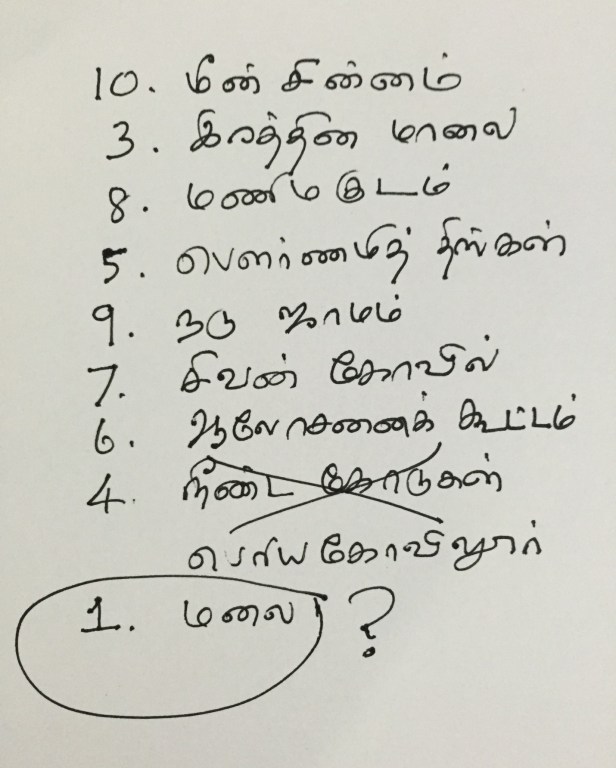 10. மீன் சின்னம்
3. இரத்தின மாலை
8. மணிமகுடம்
5. பௌர்ணமித் திங்கள்
9. நடு ஜாமம்
7. சிவன் கோவில்
6. ஆலோசனைக் கூட்டம்
4. நீண்ட கோடுகள்
பெரியகோவிலூர்
1. மலை ?